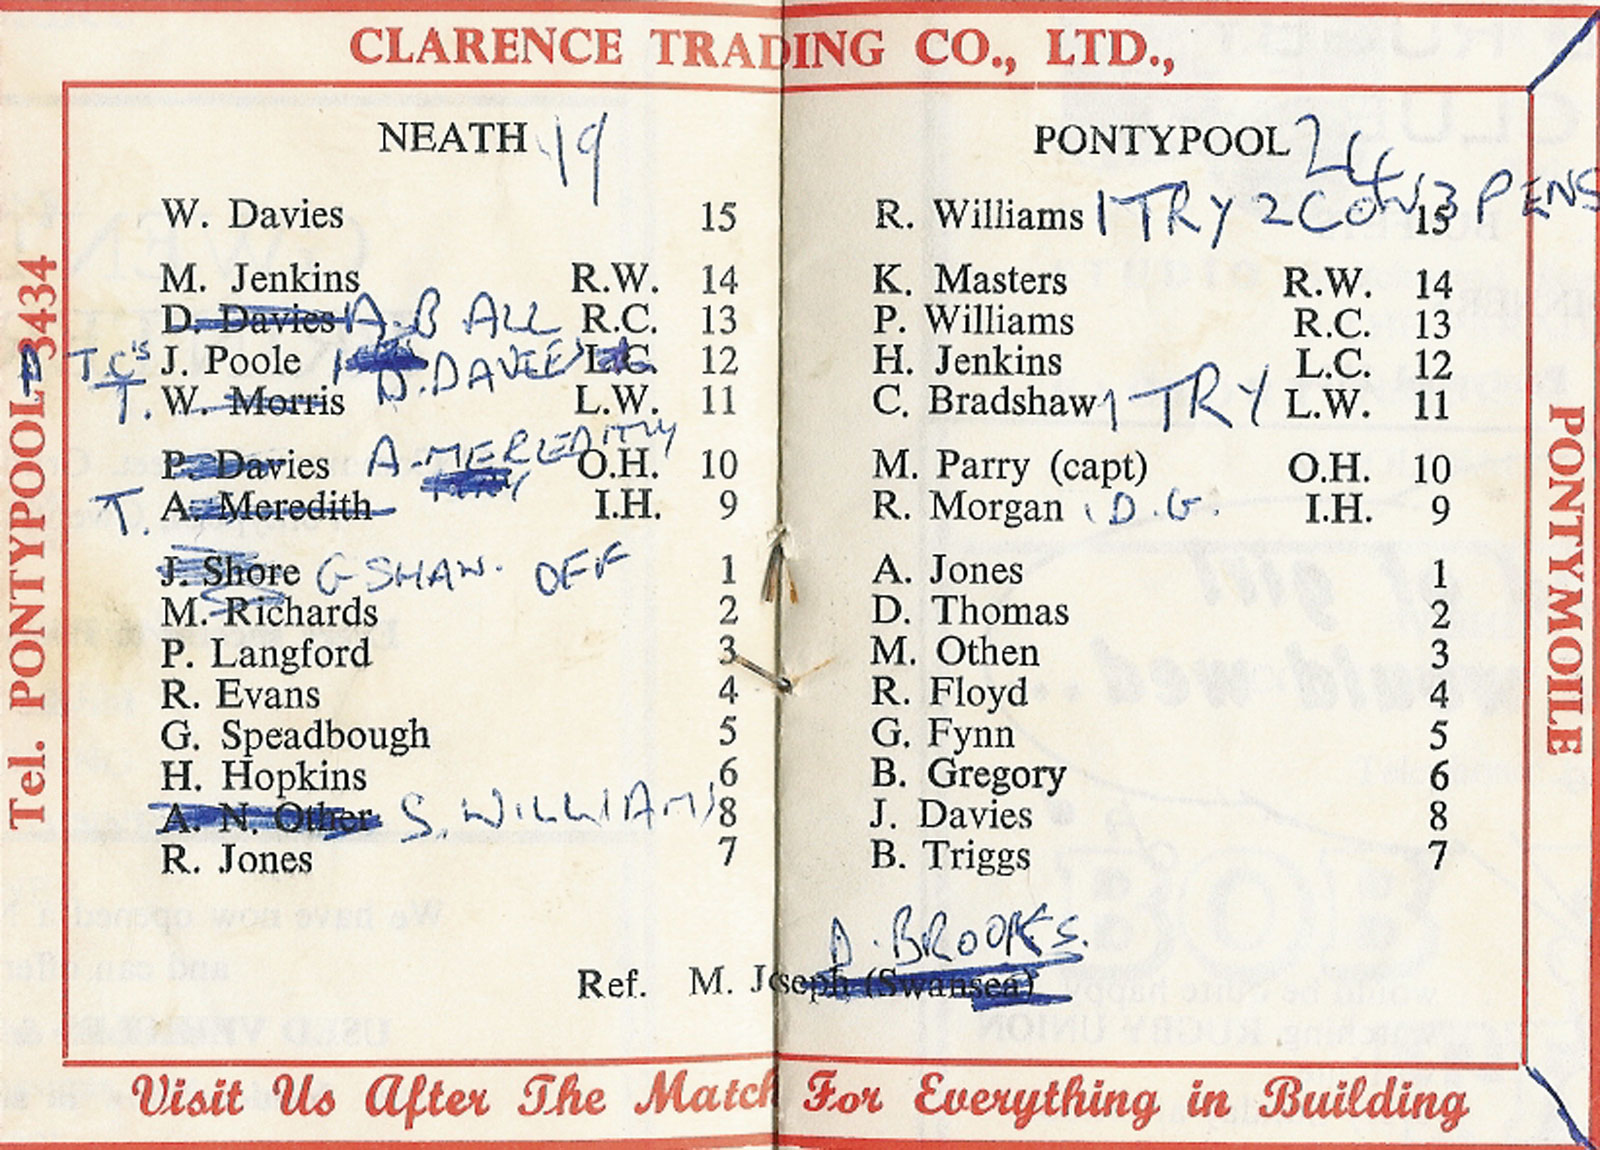 CLARENCE TRADING CO., LTD.,
Tel. PONTYPOOL 3434
NEATH 19
W. Davies 15
M. Jenkins R.W. 14
D. Davies A. BALL R.C. 13
T.C'S J. Poole 1 D. DAVIES L.C. 12
T. W. Morris L.W. 11
P. Davies A. MEREDITH O.H. 10
T. A. Meredith I.H. 9
J. Shore G SHAW. OFF 1
M. Richards 2
P. Langford 3
R. Evans 4
G. Speadbough 5
H. Hopkins 6
A. N. Other S. WILLIAMS 8
R. Jones 7
PONTYPOOL 24
R. Williams 1 TRY 2 CONV 3 PENS 15
K. Masters R.W. 14
P. Williams R.C. 13
H. Jenkins L.C. 12
C. Bradshaw 1 TRY L.W. 11
M. Parry (capt) O.H. 10
R. Morgan 1 D.G. I.H. 9
A. Jones 1
D. Thomas 2
M. Othen 3
R. Floyd 4
G. Fynn 5
B. Gregory 6
J. Davies 8
B. Triggs 7
D. BROOKS.
Ref. M. Joseph (Swansea)
PONTYMOILE
Visit Us After The Match For Everything in Building